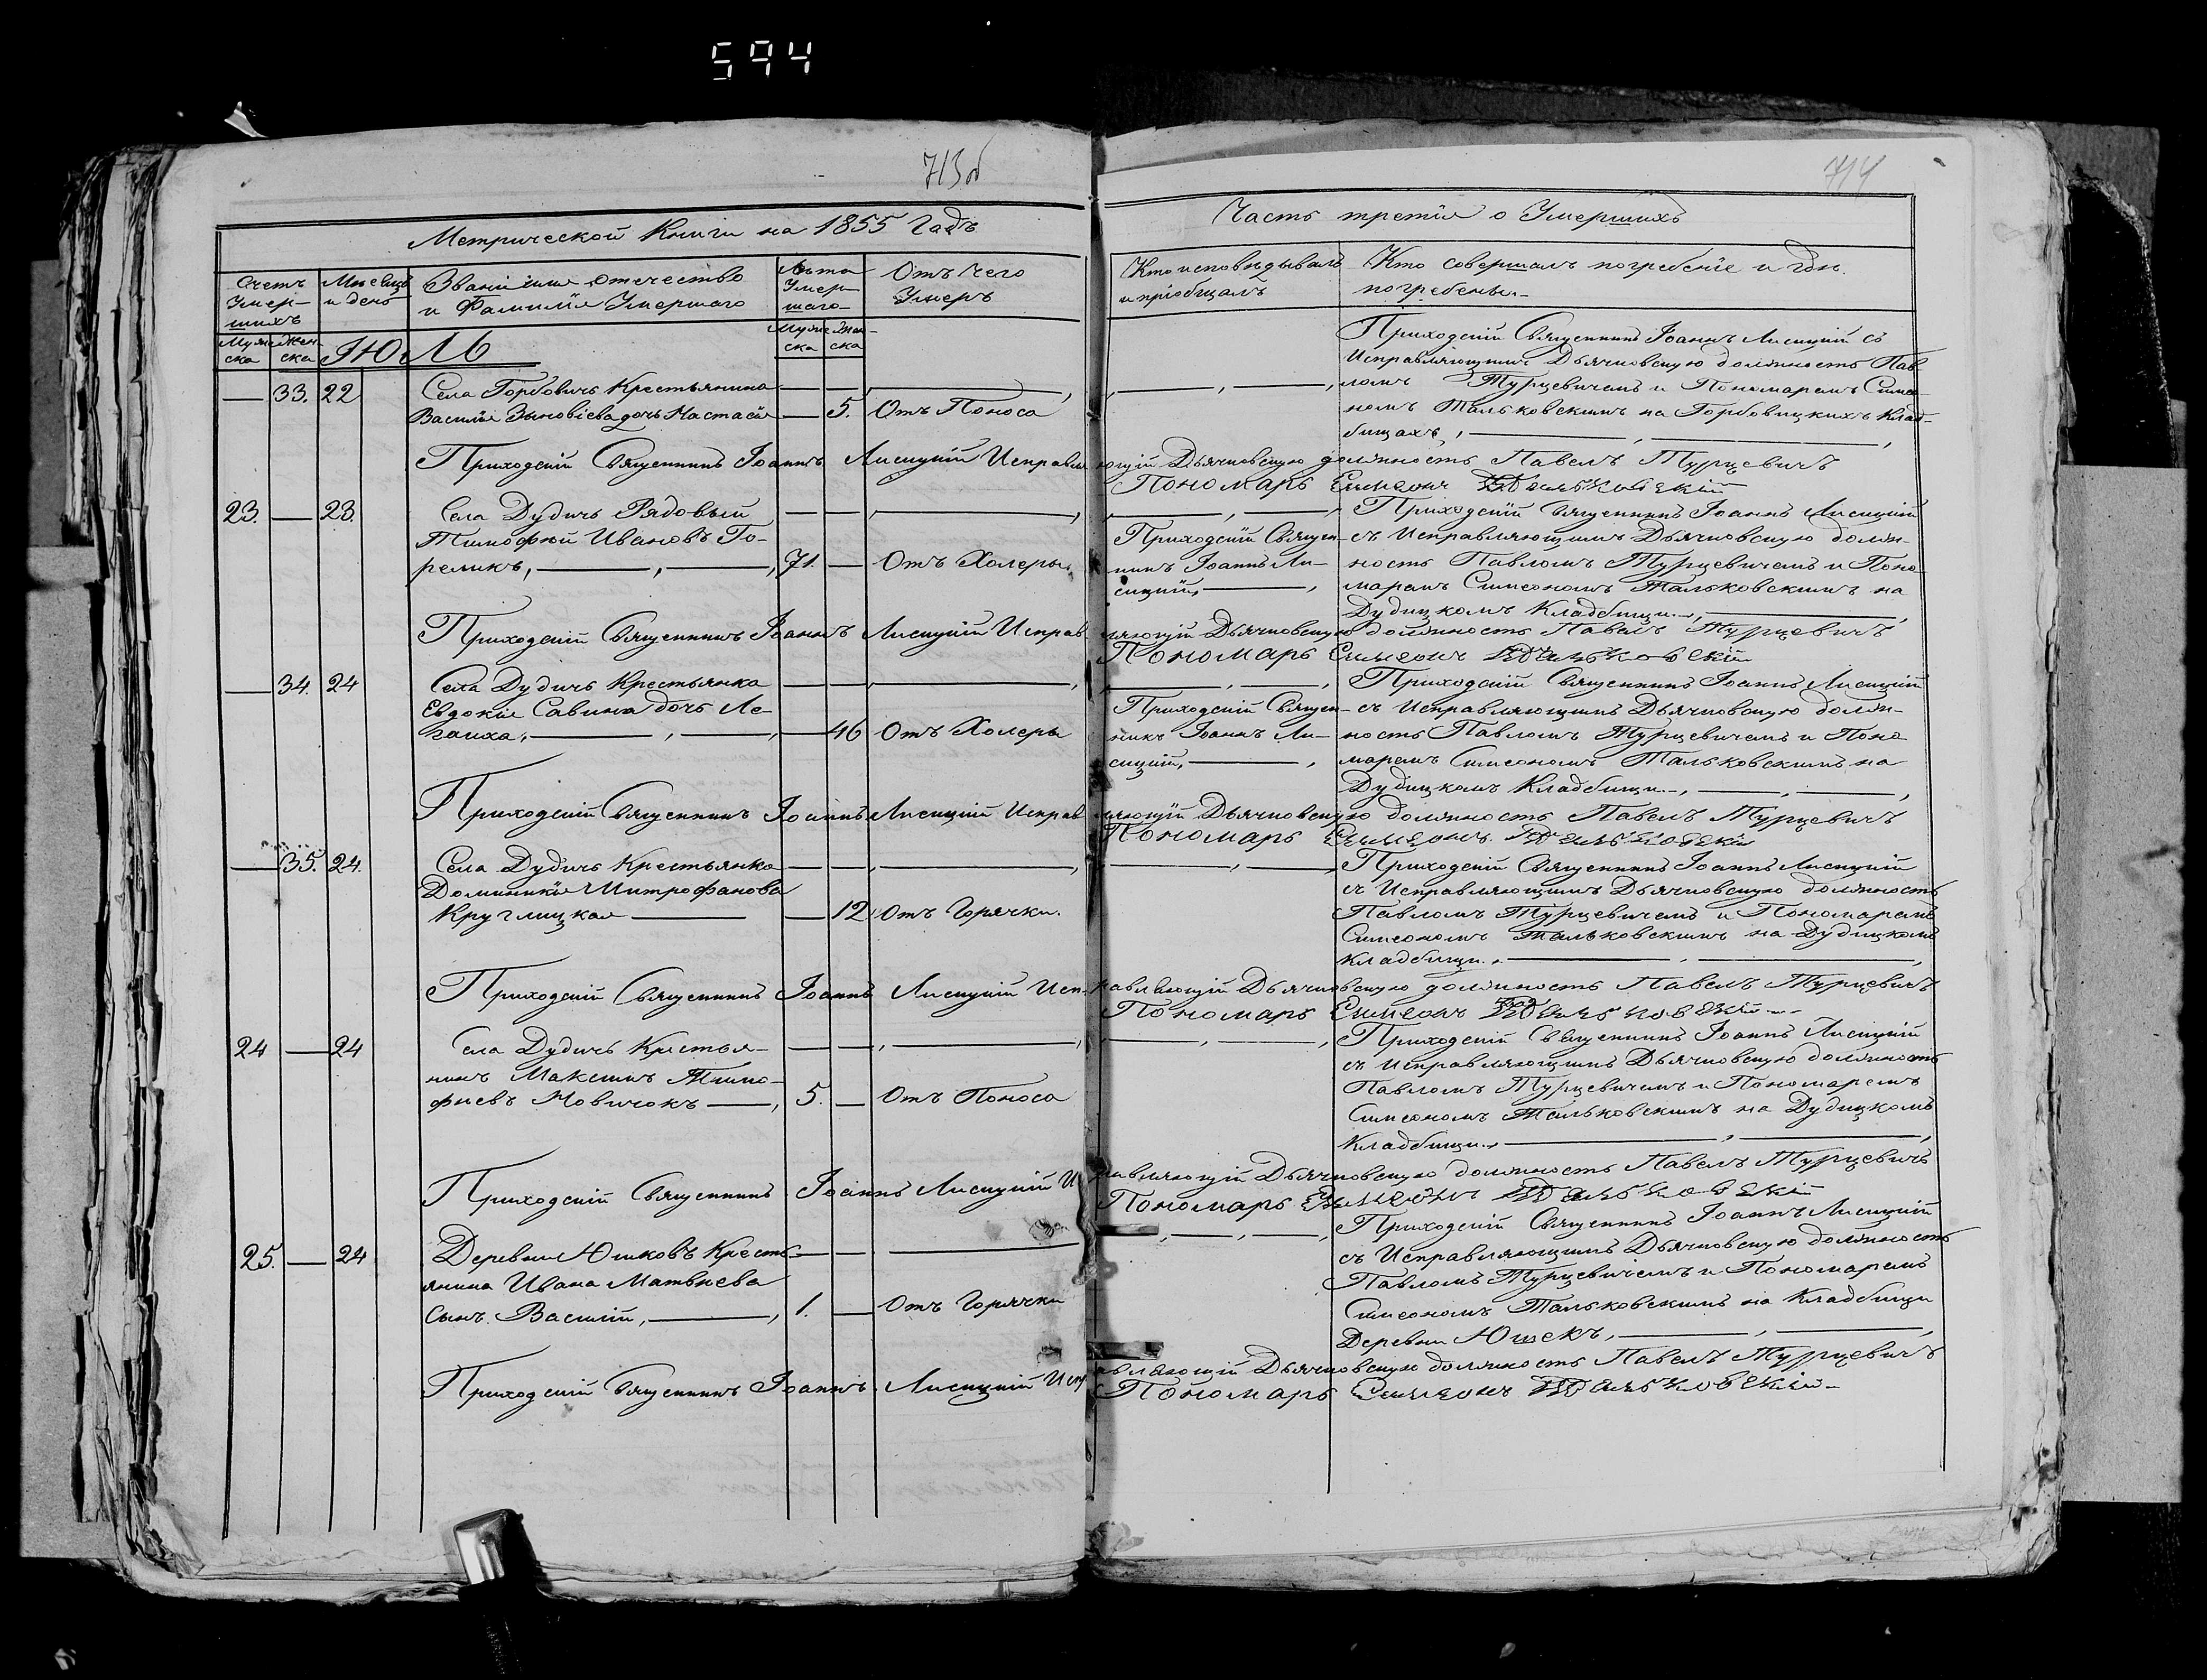 594
713об
714
Метрической Книги на 1855 Годъ
Часть третія о Умершихъ
Счетъ
Умер-
шихъ
Мѣсяцъ
и день
Званіе имя отечество
и Фамилія Умершаго
Лѣта
Умер-
шаго
Отъ чего
Умеръ
Кто исповѣдывалъ
и пріобщалъ
Кто совершалъ погребеніе и гдѣ
погребены
Муже-
ска
Жен-
ска
Муже
ска
Жен-
ска
ІЮЛЬ
33. 22
Села Горбовичъ Крестьянина
Василія Зыновіева дочь Настасія
5. Отъ Поноса
Приходскій Священникъ Іоаннъ Лисицкій съ
Исправляющимъ Дьячковскую должность Пав
ломъ Турцевичемъ и Пономаремъ Симе
номъ Тальковскимъ на Горбовицкихъ Клад-
бищахъ,
Приходскій Священникъ Іоаннъ Лисицкій Исправляющій Дьячковскую должность Павелъ Турцевичъ
Пономарь Симеонъ Тальковскій
23. 23.
Села Дудичъ Рядовый
Тимофей Ивановъ Го-
реликъ,
71. Отъ Холеры
Приходскій Священ-
никъ Іоаннъ Ли-
сицкій,
Приходскій Священникъ Іоаннъ Лисицкій
съ Исправляющимъ Дьячковскую долж-
ность Павломъ Турцевичемъ и Поно
маремъ Симеономъ Тальковскимъ на
Дудицкомъ Кладбищи.,
Приходскій Священникъ Іоаннъ Лисицкій Исправляющій Дьячковскую должность Павелъ Турцевичъ
Пономарь Симеонъ Тальковскій
34. 24
Села Дудичъ Крестьянка
Евдокія Савина дочь Ле-
гаиха,
46 Отъ Холеры
Приходскій Священ-
никъ Іоаннъ Ли-
сицкій,
Приходскій Священникъ Іоаннъ Лисицкій
съ Исправляющимъ Дьячковскую долж-
ность Павломъ Турцевичемъ и Поно
маремъ Симеономъ Тальковскимъ на
Дудицкомъ Кладбищи.,
Приходскій Священникъ Іоаннъ Лисицкій Исправляющій Дьячковскую должность Павелъ Турцевичъ
Пономарь Симеонъ Тальковскій
35. 24.
Села Дудичъ Крестьянка
Доминикія Митрофанова
Круглицкая
12 Отъ Горячки.
Приходскій Священникъ Іоаннъ Лисицкій
съ Исправляющимъ Дьячковскую должность
Павломъ Турцевичемъ и Пономаремъ
Симеономъ Тальковскимъ на Дудицкомъ
Кладбищи.,
Приходскій Священникъ Іоаннъ Лисицкій Исправляющій Дьячковскую должность Павелъ Турцевичъ
Пономарь Симеонъ Тальковскій
24 24
Села Дудичъ Крестья-
нинъ Максимъ Тимо-
фиевъ Новичокъ
5. Отъ Поноса
Приходскій Священникъ Іоаннъ Лисицкій
съ Исправляющимъ Дьячковскую должность
Павломъ Турцевичемъ и Пономаремъ
Симеономъ Тальковскимъ на Дудицкомъ
Кладбищи.,
Приходскій Священникъ Іоаннъ Лисицкій Исправляющій Дьячковскую должность Павелъ Турцевичъ
Пономарь Симеонъ Тальковскій
25. 24
Деревни Юшковъ Кресть-
янина Ивана Матвѣева
Сынъ Василій,
1. Отъ Горячки
Приходскій Священникъ Іоаннъ Лисицкій
съ Исправляющимъ Дьячковскую должность
Павломъ Турцевичемъ и Пономаремъ
Симеономъ Тальковскимъ на Кладбищи
Деревни Юшекъ,
Приходскій Священникъ Іоаннъ Лисицкій Исправляющій Дьячковскую должность Павелъ Турцевичъ
Пономарь Симеонъ Тальковскій